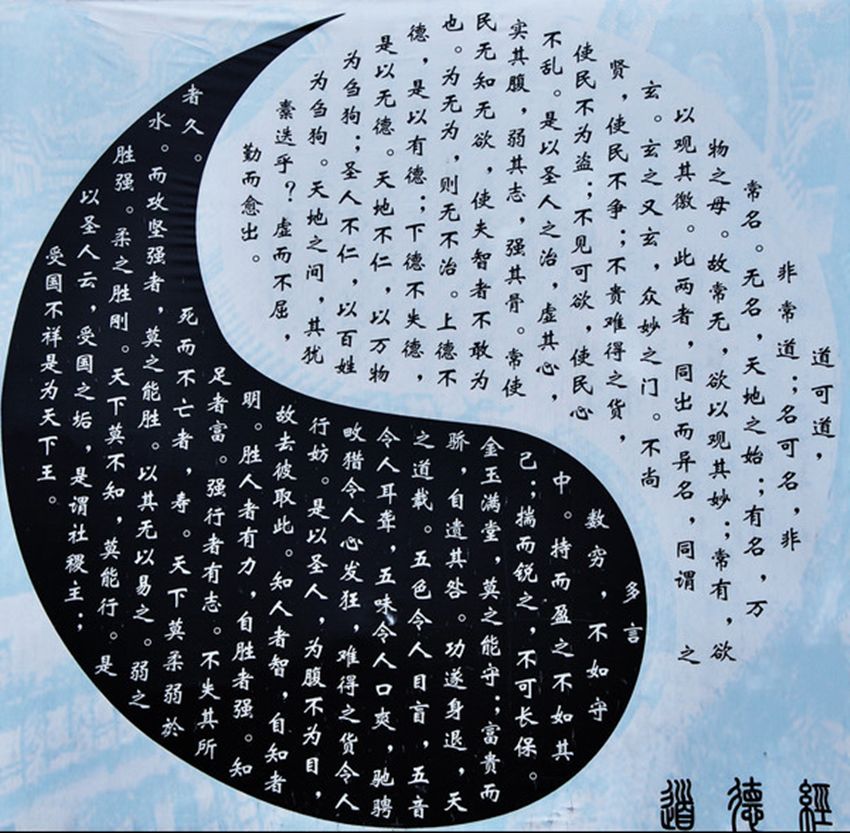 道可道，
非常道；名可名，非
常名。无名，天地之始；有名，万
物之母。故常无，欲以观其妙；常有，欲
以观其徼。此两者，同出而异名，同谓 之
玄。玄之又玄，众妙之门。不尚
贤，使民不争；不贵难得之货，
使民不为盗；不见可欲，使民心
不乱。是以圣人之治，虚其心，
实其腹，弱其志，强其骨。常使
民无知无欲，使夫智者不敢为
也。为无为，则无不治。上德不
德，是以有德；下德不失德，
是以无德。天地不仁，以万物
为刍狗；圣人不仁，以百姓
为刍狗。天地之间，其犹
橐迭乎？虚而不屈，
勤而愈出。
多言
数穷，不如守
中。持而盈之不如其
己；揣而锐之，不可长保。
金玉满堂，莫之能守；富贵而
骄，自遗其咎。功遂身退，天
之道载。五色令人目盲，五音
令人耳聋，五味令人口爽，驰骋
畋猎令人心发狂，难得之货令人
行妨。是以圣人，为腹不为目，
故去彼取此。知人者智，自知者
明。胜人者有力，自胜者强。知
足者富。强行者有志。不失其所
者久。 死而不亡者，寿。天下莫柔弱於
水。而攻坚强者，莫之能胜。以其无以易之。弱之
胜强。柔之胜刚。天下莫不知，莫能行。是
以圣人云，受国之垢，是谓社稷主；
受国不祥是为天下王。
道德經